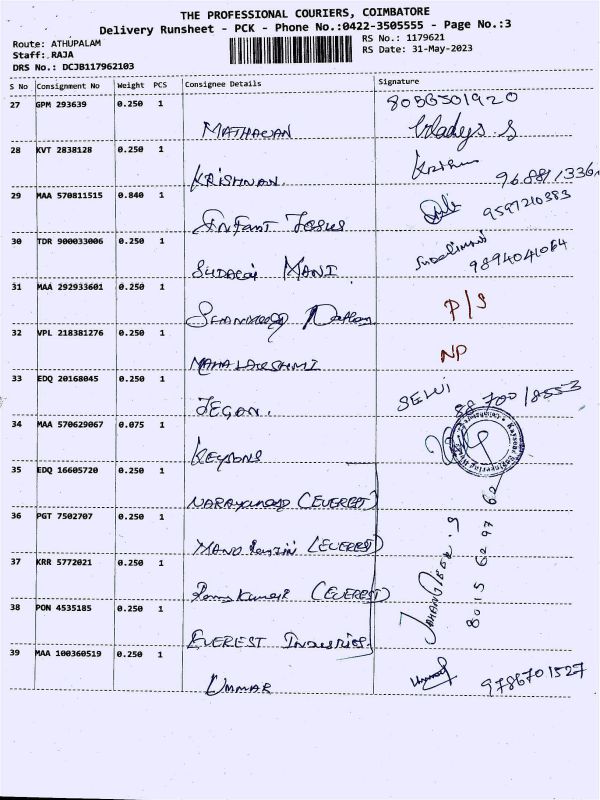 THE PROFESSIONAL COURIERS, COIMBATORE
Delivery Runsheet - PCK - Phone No.:0422-3505555 - Page No.:3
Route: ATHUPALAM
RS No.: 1179621
Staff: RAJA
RS Date: 31-May-2023
DRS No.: DCJB117962103
S No Consignment No Weight PCS Consignee Details Signature
27 GPM 293639 0.250 1
8056501920
MATHAVAN Gladys. S
28 KVT 2838128 0.250 1
KRISHNAN.
29 MAA 570811515 0.840 1
9597210383
INFANT JESUS
30 TDR 900033006 0.250 1
9894041064
SUDALAI MANI
31 MAA 292933601 0.250 1
P/S
32 VPL 218381276 0.250 1
NP
MAHALAKSHMI
33 EDQ 20168045 0.250 1
SELVI 88 700 18553
JEGAN.
34 MAA 570629067 0.075 1
KEYSONS
35 EDQ 16605720 0.250 1
(EVEREST)
36 PGT 7502707 0.250 1
MANO (EVEREST)
37 KRR 5772021 0.250 1
Ram Kumar (EVEREST)
38 PON 4535185 0.250 1
JAHANGIBER. S
8015 6297 62
EVEREST Industries.
39 MAA 100360519 0.250 1
9786701527
UMMAR